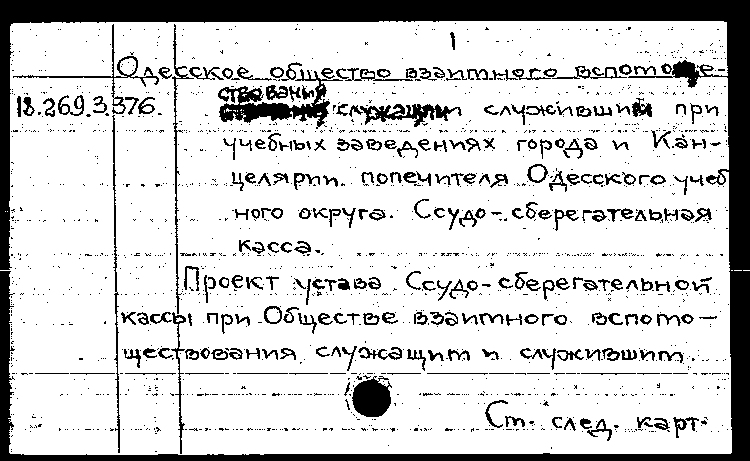 1
Одесское общество взаимного вспоможе-
ствования
18.269.3.376. служащим служившим при
учебных заведениях города и Кан-
целярии попечителя Одесского учеб
ного округа. Ссудо-сберегательная
касса.
Проект устава Ссудо-сберегательной
кассы при Обществе взаимного вспомо-
ществования служащим и служившим.
См. след. карт.